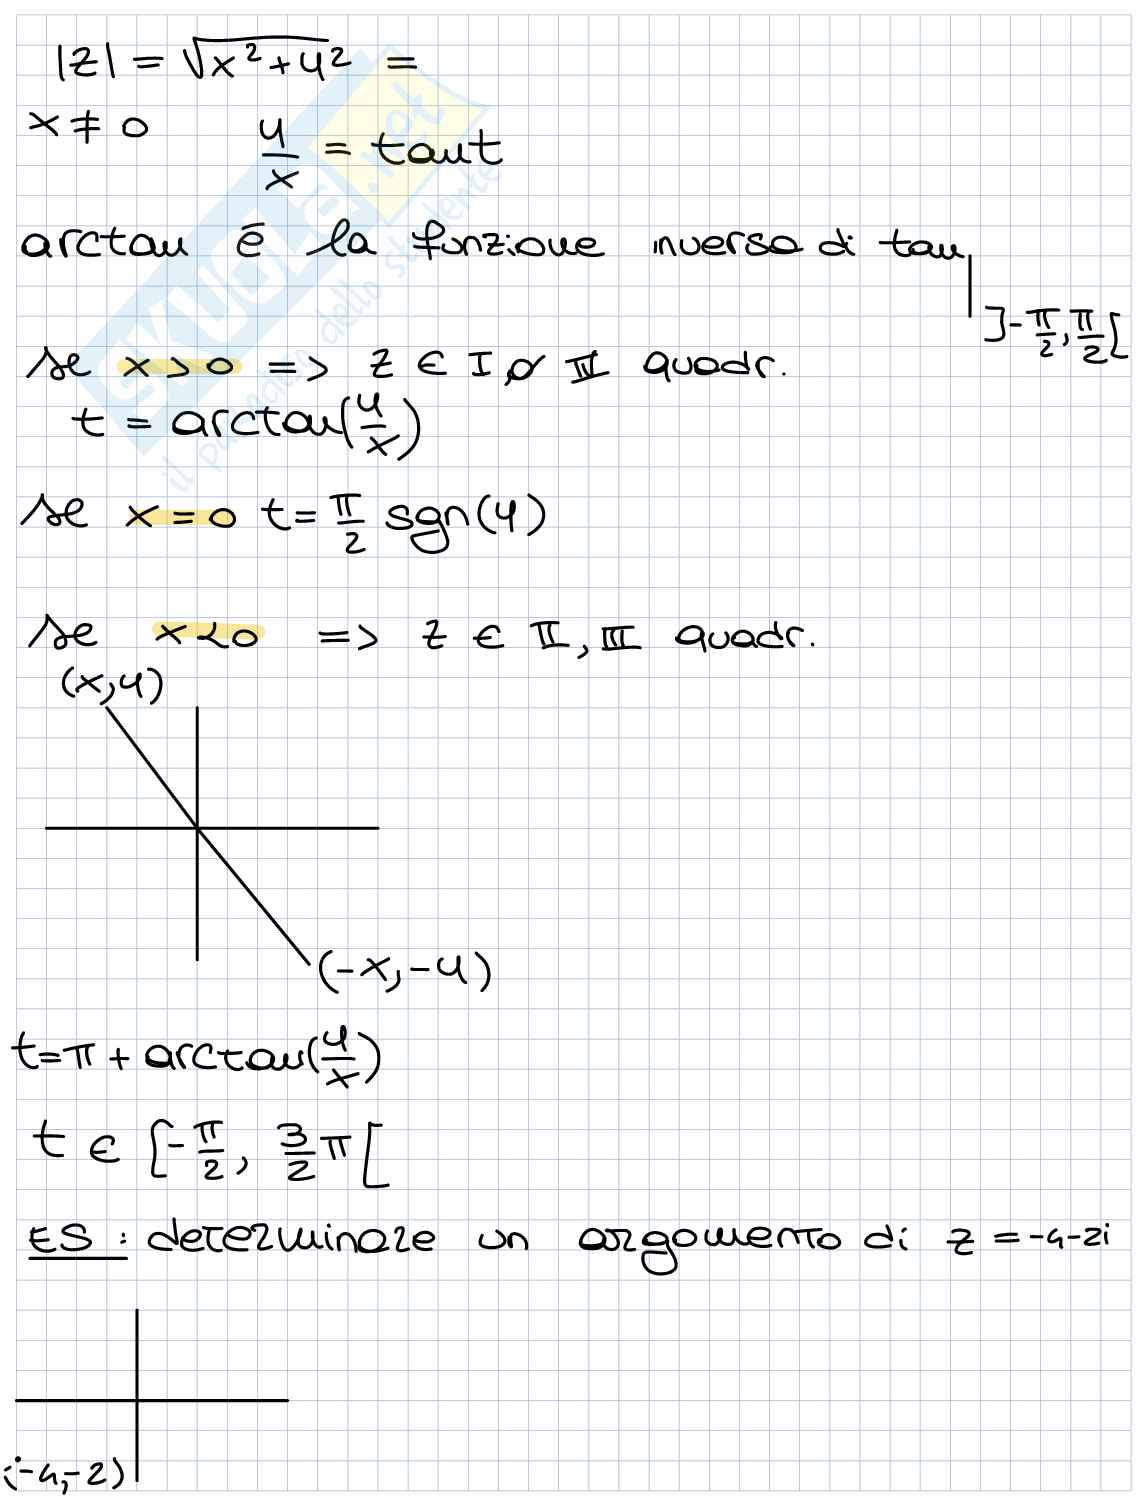 |z| = √x²+y² =
x ≠ 0 y/x = tan t
arctan è la funzione inversa di tan
]-π/2, π/2[
se x > 0 => z ∈ I o IV quadr.
t = arctan(y/x)
se x = 0 t = π/2 sgn(y)
se x < 0 => z ∈ II, III quadr.
(x,y)
(-x,-y)
t = π + arctan(y/x)
t ∈ [-π/2, 3/2 π[
ES: determinare un argomento di z = -4-2i
(-4,-2)
SKUOLA.net
il paradiso dello studente